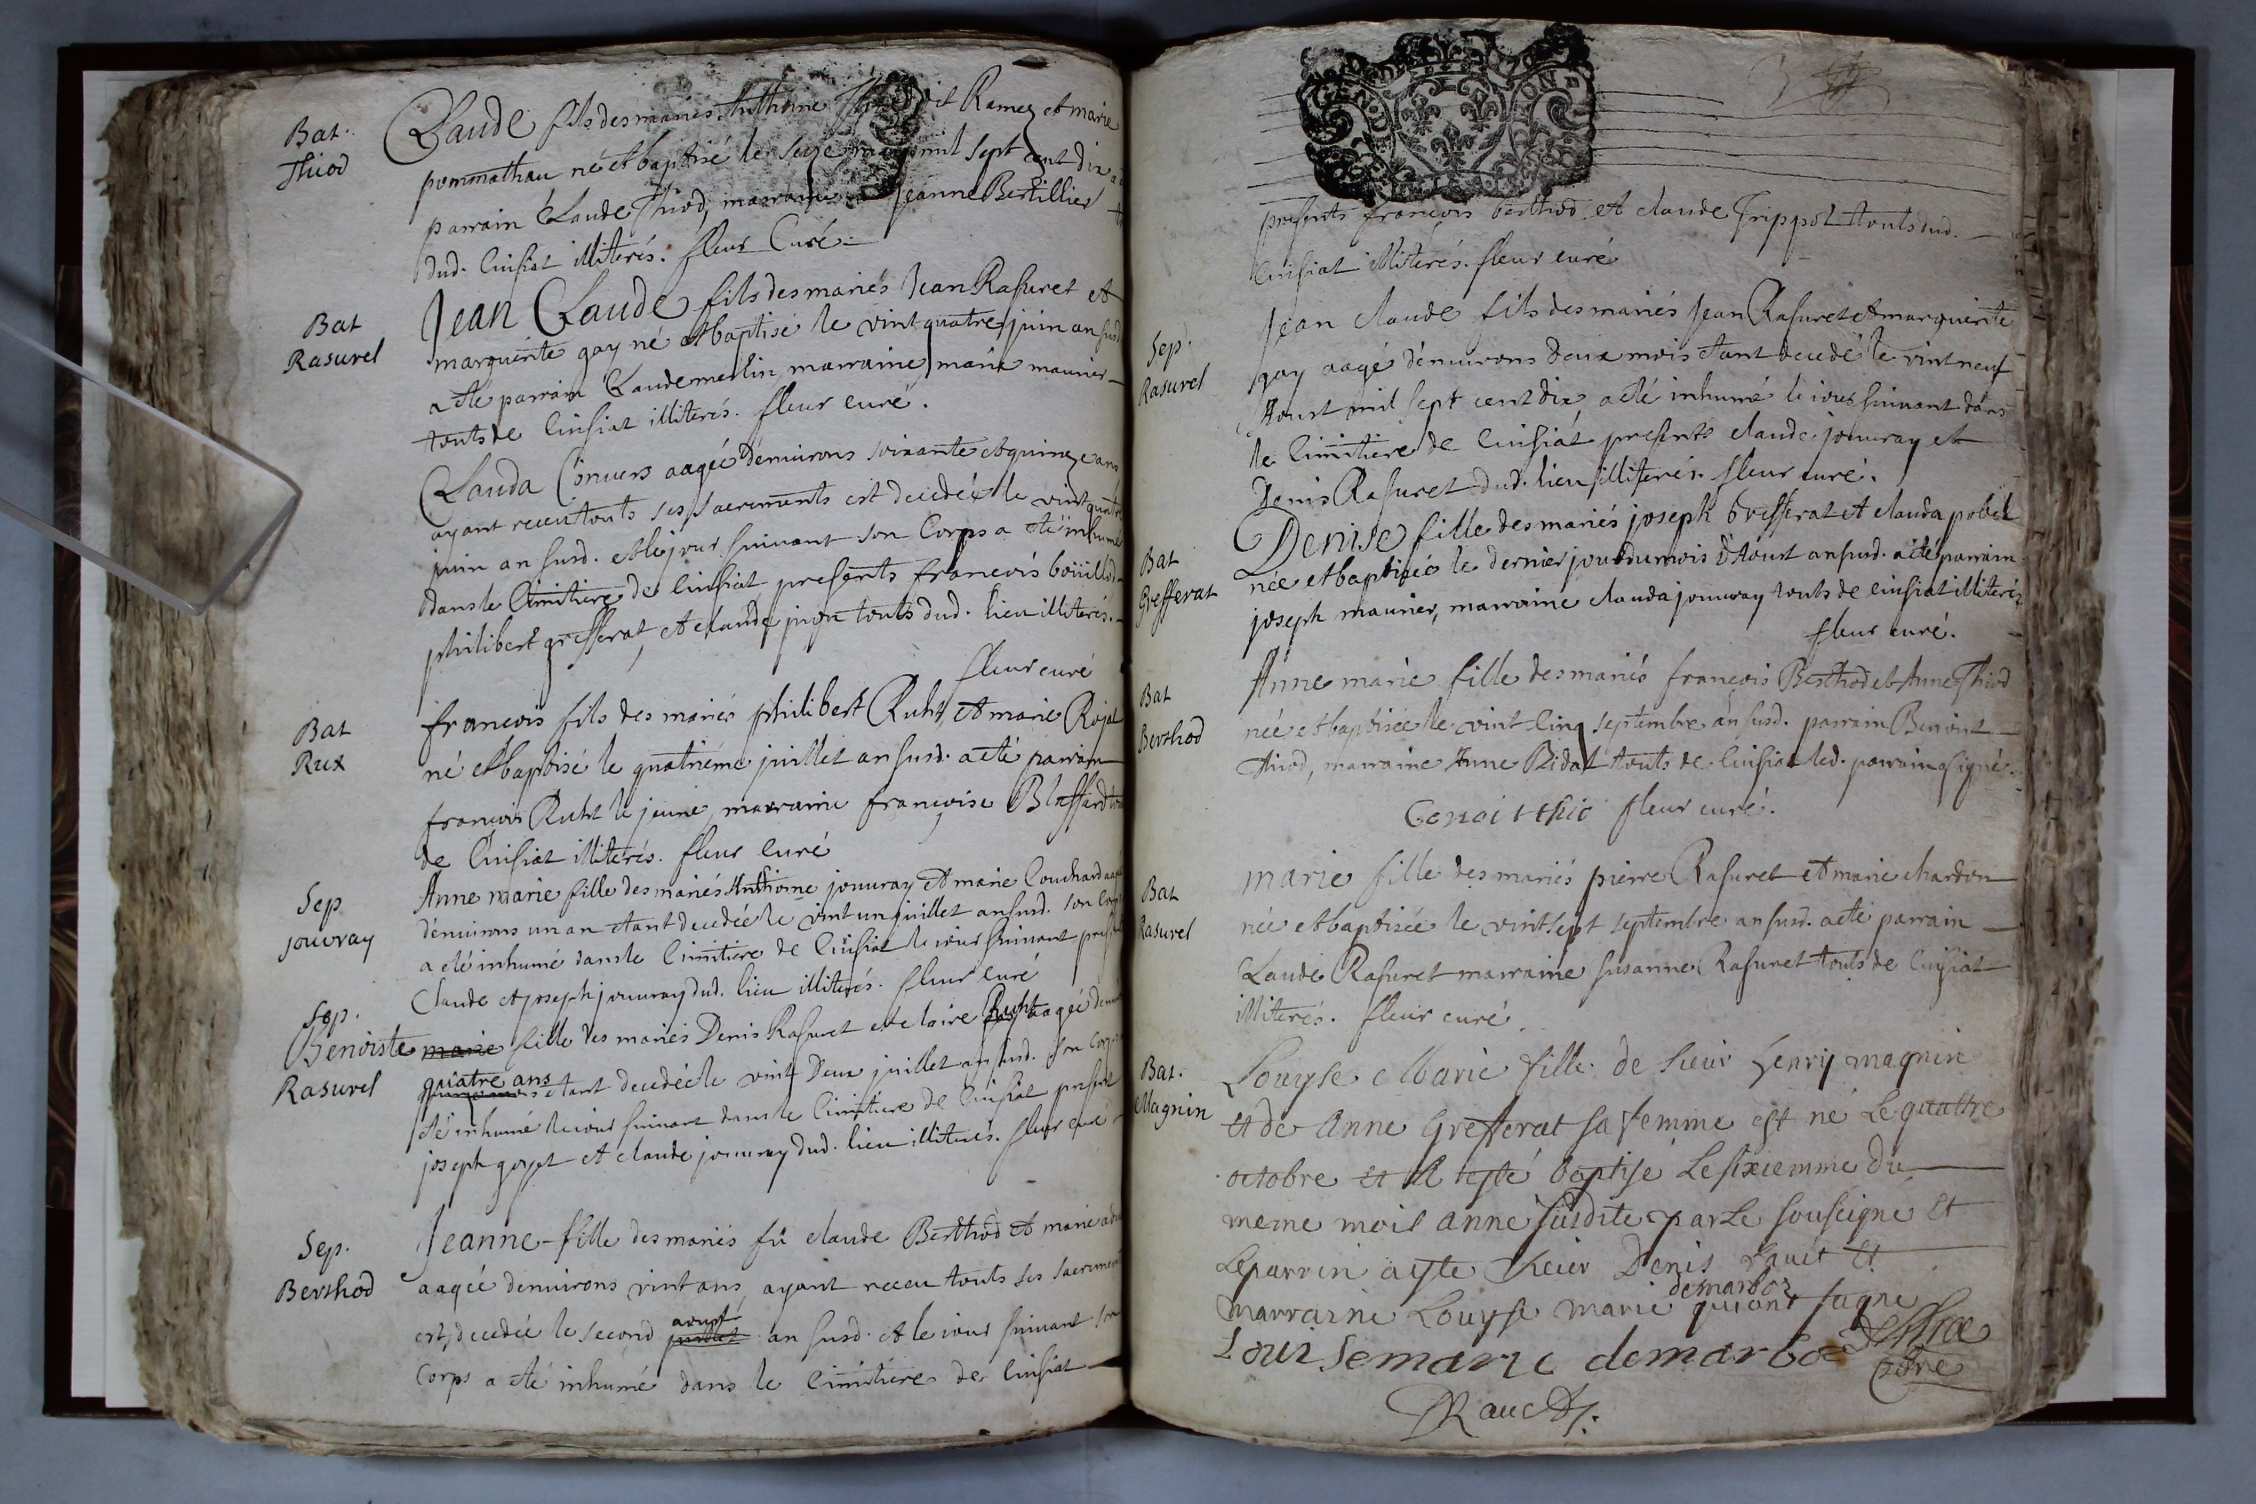 Bat.
Thiod
Claude fils des mariés Anthoine dit Ramey et marie
pommathau né et baptisé le seize mil sept cent dix
parrain Claude Thiod, marraine Jeanne Bertillier
dud. Cuisiat illiterés. fleur Curé
Bat
Rasurel
Jean Claude fils des mariés Jean Rasurel et
marguerite gay né et baptisé le vint quatre juin an susd
a été parrain Claude merlin marraine marie maurier
touts de Cuisiat illiterés. fleur curé.
Clauda Convers aagée d'enuirons soixante et quinze ans
ayant receu touts ses sacrements est decedée le vint quatre
juin an susd. et le jour suiuant son Corps a été inhumé
dans le Cimitiere de Cuisiat presents francois bouillod
philibert grefferat, et claude pujon touts dud. lieu illiterés.
fleur curé
Bat
Rux
francois fils des mariés philibert Ruht et marie Rojat
né et baptisé le quatriéme juillet an susd. a été parrain
francois Ruht le jeune, marraine francoise Blaffard
de Cuisiat illiterés. fleur Curé
Sep
jouvray
Anne marie fille des mariés Anthoine jouuray et marie Couchard aagée
d'enuirons un an etant decedée le vint un juillet an susd. son Corps
a été inhumé dans le Cimitiere de Cuisiat le iour suiuant presents
Claude et joseph jouuray dud. lieu illiterés. fleur Curé
Sep.
Benoiste
Rasurel
marie fille des mariés Denis Rasurel et claire Ruht aagée d'enui
quatre ans
etant decedée le vint Deux juillet an susd. son Corps
été inhumé le iour suiuant dans le Cimitiere de Cuisiat present
joseph goyet et claude jouuray dud. lieu illiterés. fleur curé
Sep.
Berthod
Jeanne fille des mariés fû claude Berthod et marie
aagée d'enuirons vint ans, ayant receu touts ses sacrements
aoust
est decedée le second juillet an susd. et le iour suiuant son
Corps a été inhumé dans le Cimitiere de Cuisiat
presents francois berthod et claude Trippoz touts dud.
Cuisiat illiterés. fleur curé
Sep.
Rasurel
Jean claude fils des mariés Jean Rasurel et marguerite
gay aagé d'enuirons deux mois etant decedé le vint neuf
Aoust mil sept cent dix, a été inhumé le iour suiuant dans
le Cimitiere de Cuisiat presents claude jouuray et
Denis Rasurel dud. lieu illiterés. fleur curé.
Bat
Grefferat
Denise fille des mariés joseph Grefferat et clauda pobel
née et baptisée le dernier jour du mois d'Aoust an susd. a été parrain
joseph maurier, marraine clauda jouuray touts de cuisiat illiterés
fleur curé.
Bat
Berthod
Anne marie fille des mariés francois Berthod et Anne Thiod
née et baptisée le vint Cinq septembre an susd. parrain Benoist
Thiod, marraine Anne Bidat touts de Cuisiat led. parrain a signé.
fleur curé.
Bat
Rasurel
marie fille des mariés pierre Rasurel et marie chardon
née et baptisée le vint sept septembre an susd. a été parrain
Claude Rasurel marraine susanne Rasurel touts de Cuisiat
illiterés. fleur curé.
Bat.
Magnin
Louyse Marie fille de sieur henry magnin
et de Anne Grefferat sa femme est né Le quattre
octobre et esté baptisé Le sixiemme du
meme mois anne susdite par Le souseigné Et
Le parrin a este sieur Denis rauct Et
demarboz
marraine Louyse marie qui ont signe
Louise marie demarboz
Rauct